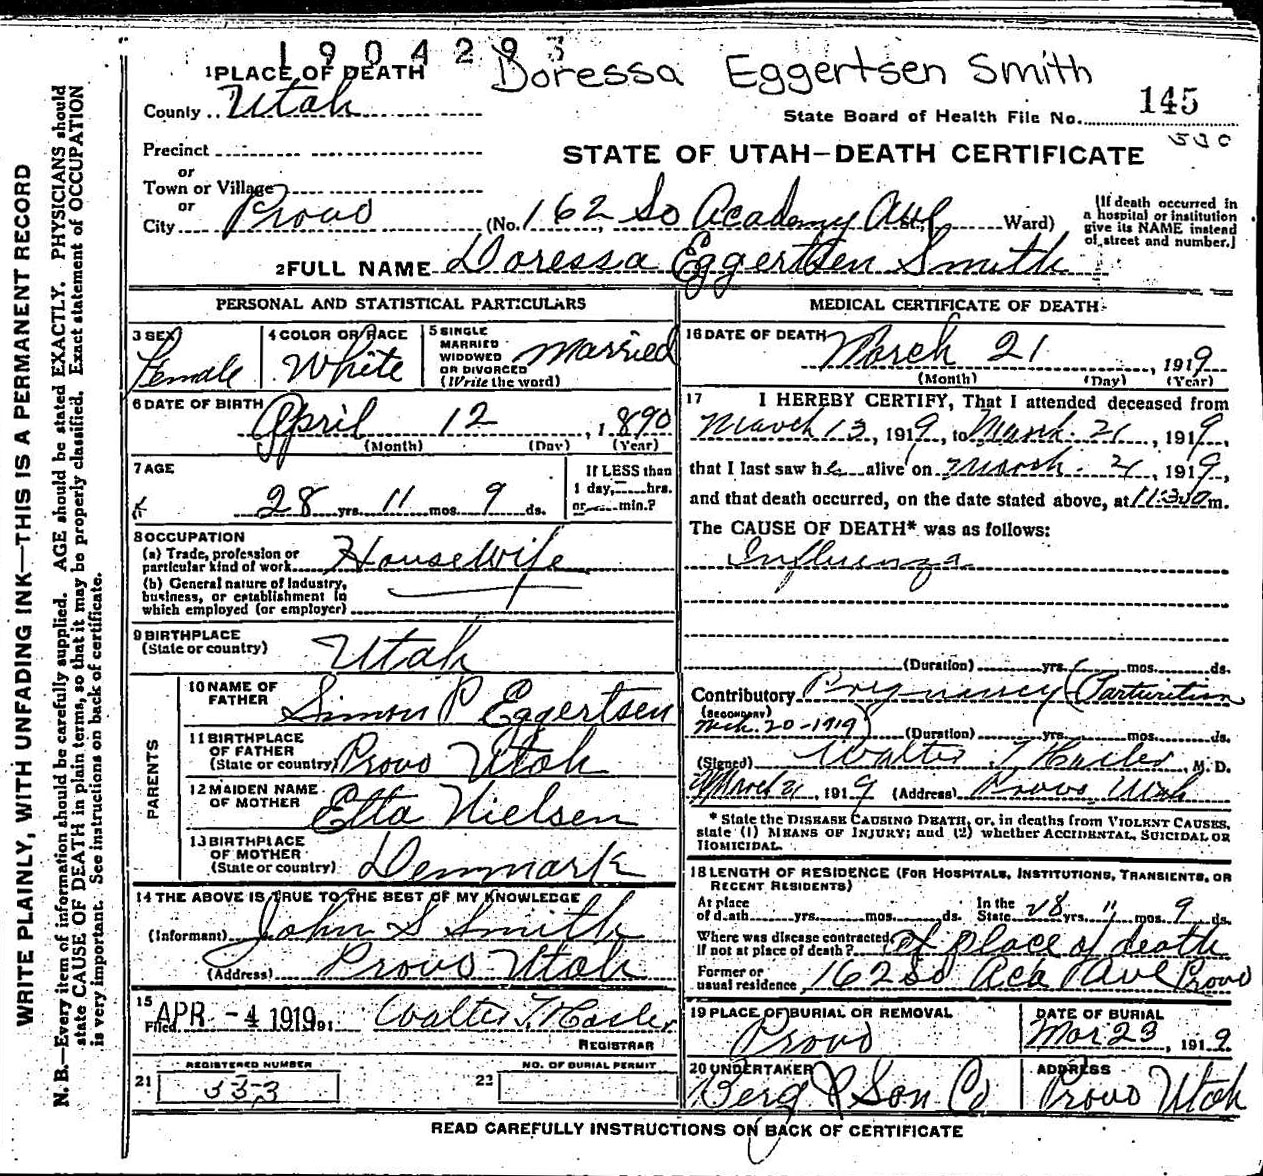 1904293
Doressa Eggertsen Smith
1 PLACE OF DEATH
County Utah
State Board of Health File No. 145
530
Precinct
or
Town or Village
or
City Provo
STATE OF UTAH—DEATH CERTIFICATE
(No. 162 So Academy Ave St., Ward)
[If death occurred in a hospital or institution give its NAME instead of street and number.]
2 FULL NAME Doressa Eggertsen Smith
PERSONAL AND STATISTICAL PARTICULARS
3 SEX Female
4 COLOR OR RACE White
5 SINGLE MARRIED WIDOWED OR DIVORCED (Write the word) Married
6 DATE OF BIRTH April 12, 1890
(Month) (Day) (Year)
7 AGE 28 yrs. 11 mos. 9 ds.
If LESS than 1 day, hrs. or min.?
8 OCCUPATION
(a) Trade, profession or particular kind of work Housewife
(b) General nature of industry, business, or establishment in which employed (or employer)
9 BIRTHPLACE (State or country) Utah
PARENTS
10 NAME OF FATHER Simon P Eggertsen
11 BIRTHPLACE OF FATHER (State or country) Provo Utah
12 MAIDEN NAME OF MOTHER Etta Nielsen
13 BIRTHPLACE OF MOTHER (State or country) Denmark
14 THE ABOVE IS TRUE TO THE BEST OF MY KNOWLEDGE
(Informant) John S Smith
(Address) Provo Utah
15 Filed APR -4 1919 191 Walter T. Hasler
REGISTRAR
REGISTERED NUMBER
21 533
NO. OF BURIAL PERMIT
22
MEDICAL CERTIFICATE OF DEATH
16 DATE OF DEATH March 21, 1919
(Month) (Day) (Year)
17 I HEREBY CERTIFY, That I attended deceased from
March 13, 1919, to March 21, 1919,
that I last saw he alive on March 21, 1919,
and that death occurred, on the date stated above, at 11:30 m.
The CAUSE OF DEATH* was as follows:
Influenza
(Duration) yrs. mos. ds.
Contributory Pregnancy (Parturition
(SECONDARY)
Mch. 20-1919) (Duration) yrs. mos. ds.
(Signed) Walter T Hasler, M. D.
March 21, 1919 (Address) Provo, Utah
* State the DISEASE CAUSING DEATH, or, in deaths from VIOLENT CAUSES, state (1) MEANS OF INJURY; and (2) whether ACCIDENTAL, SUICIDAL OR HOMICIDAL.
18 LENGTH OF RESIDENCE (FOR HOSPITALS, INSTITUTIONS, TRANSIENTS, OR RECENT RESIDENTS)
At place of death yrs. mos. ds. In the State 28 yrs. 11 mos. 9 ds.
Where was disease contracted if not at place of death? At place of death
Former or usual residence 162 So Aca Ave Provo
19 PLACE OF BURIAL OR REMOVAL Provo
DATE OF BURIAL Mar 23, 1919
20 UNDERTAKER Berg & Son Co
ADDRESS Provo Utah
READ CAREFULLY INSTRUCTIONS ON BACK OF CERTIFICATE
WRITE PLAINLY, WITH UNFADING INK—THIS IS A PERMANENT RECORD
N. B.—Every item of information should be carefully supplied. AGE should be stated EXACTLY. PHYSICIANS should
state CAUSE OF DEATH in plain terms, so that it may be properly classified. Exact statement of OCCUPATION
is very important. See instructions on back of certificate.